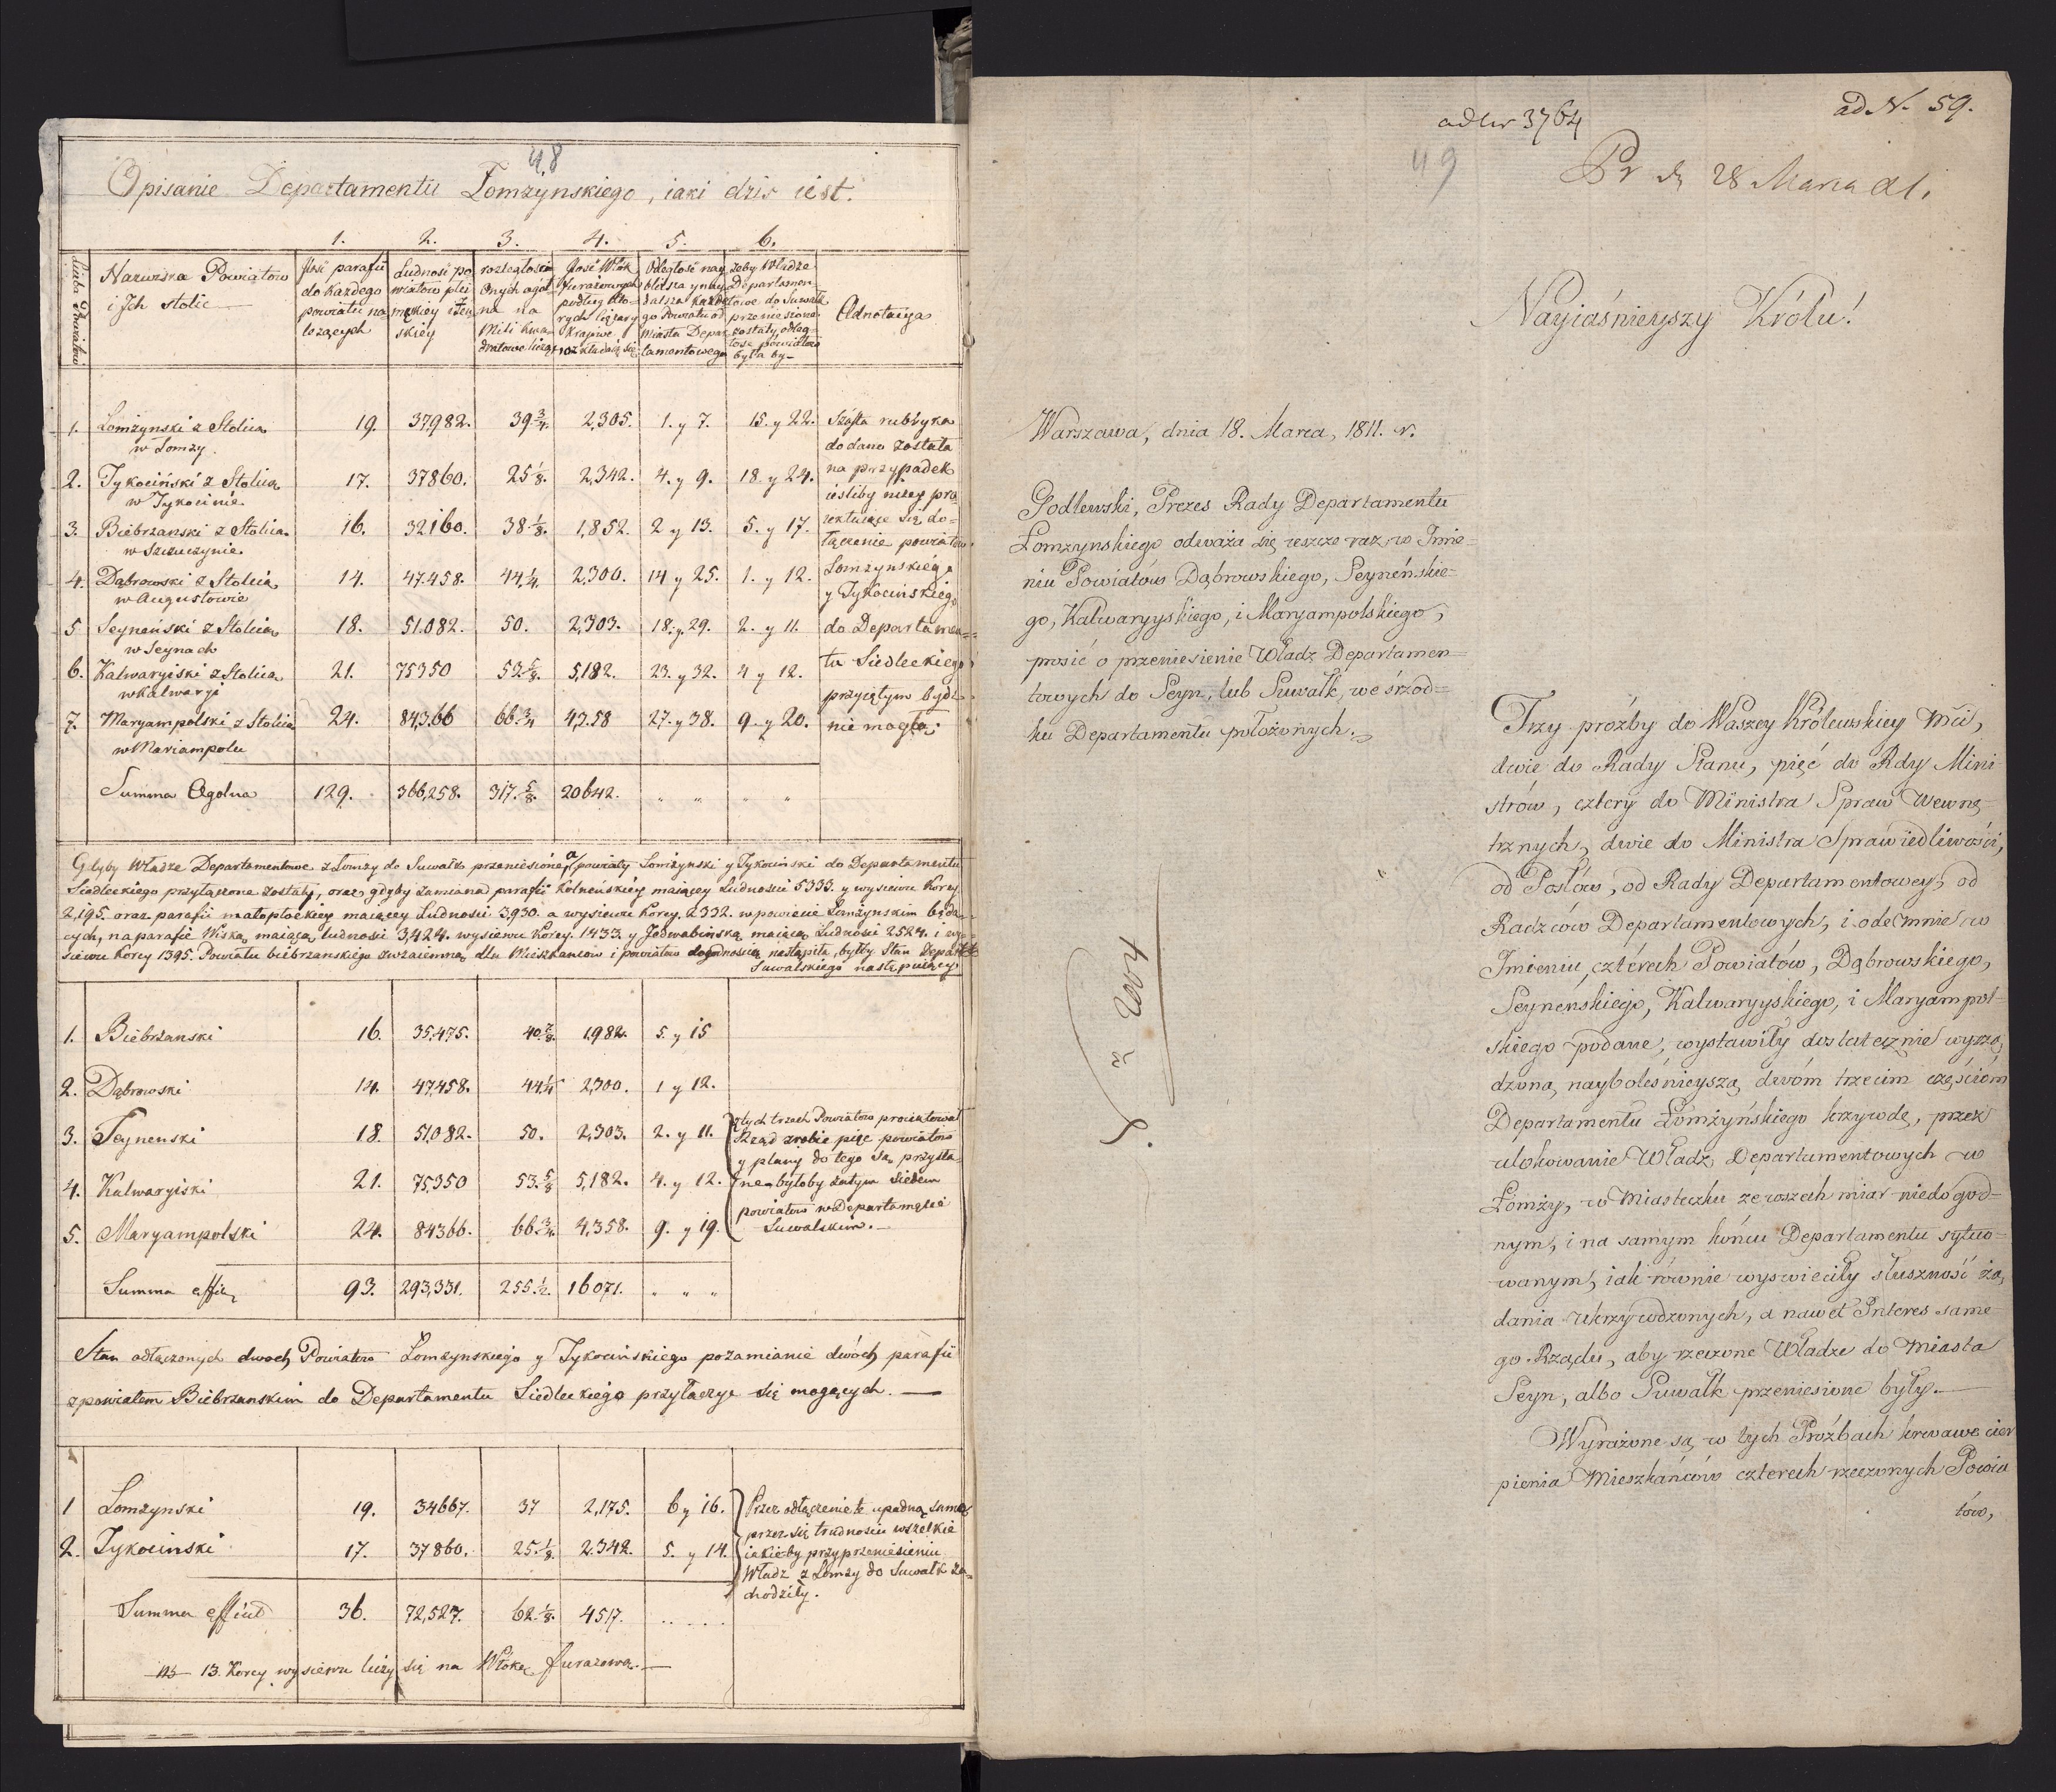 48
Opisanie Departamentu Łomżynskiego, iaki dzis iest.
1. 2. 3. 4. 5. 6.
Liczba Powiatow
Nazwiska Powiatow i Ich stolic
Ilość parafii do każdego powiatu należących
Ludność powiatow płci męskiey i żenskiey
rozległość onych ogólna na Mili kwadratowe licząc
Ilość Włók furażowych podług których ciężary Kraiowe rozkładaią się
Odległość naybliższa y naydalsza każdego Powiatu od Miasta Departamentowego
żeby Władze Departamentowe do Suwałk przeniesione zostały odległość powiatow była by
Adnotacya
1. Łomżynski z Stolicą w Łomży. 19. 37982. 39 3/4. 2,305. 1. y 7. 15. y 22.
2. Tykociński z Stolicą w Tykocinie 17. 37860. 25 1/8. 2,342. 4. y 9. 18 y 24.
3. Biebrzanski z Stolicą w Szczuczynie 16. 32160. 38 1/8. 1,852. 2 y 13. 5. y 17.
4. Dąbrowski z Stolicą w Augustowie 14. 47.458. 44 1/4. 2,300. 14 y 25. 1. y 12.
5 Seynenski z Stolicą w Seynach 18. 51.082. 50. 2,303. 18. y 29. 2. y 11.
6. Kalwaryiski z Stolicą w Kalwaryi 21. 75350 53 5/8. 5,182. 23. y 32. 4 y 12.
7. Maryampolski z Stolicą w Mariampolu 24. 84,366 66 3/4 4,358 27. y 38. 9 y 20.
Szósta rubryka
dodana została
na przypadek
iesliby niżey pro-
iektuiące się do-
łączenie powiatow
Łomzynskiego
y Tykocinskiego
do Departamen-
tu Siedleckiego
przyiętym bydz
nie mogło.
Summa Ogolna 129. 366,258. 317 5/8. 20642. " " " "
Gdyby Władze Departamentowe z Łomży do Suwałk przeniesione, a powiaty Łomżynski y Tykocinski do Departamentu
Siedleckiego przyłączone zostały, oraz gdyby zamiana parafii Kolnenskiey maiącey Ludnosci 5333. y wysiewu Korcy
2,195. oraz parafii małopłockiey maiącey Ludnosci 3,930. a wysiewu Korcy. 2332. w powiecie Łomżynskim będą-
cych, na parafie Wiską, maiącą ludnosci 3,424. wysiewu Korcy. 1433 y Jedwabinską maiącą Ludnosci 2524. i wy-
siewu Korcy 1395. Powiatu biebrzanskiego z wzaiemną dla Mieszkancow i powiatow dogodnością nastąpiła, byłby Stan Departtu
Suwalskiego następuiący
1. Biebrzanski 16. 35,475. 40 7/8. 1,982. 5. y 15
2. Dąbrowski 14. 47,458. 44 1/4 2,300. 1 y 12.
3. Seynenski 18. 51,082. 50. 2,303. 2. y 11.
4. Kalwaryiski 21. 75,350 53 5/8 5,182. 4. y 12.
5. Maryampolski 24. 84366. 66 3/4. 4,358. 9. y 19.
z tych trzech Powiatow proiektował
Rząd zrobić pięc powiatow
y plany do tego są przysła-
ne byłoby zatym siedem
powiatow w Departamencie
Suwalskim.
Summa 93. 293,331. 255 1/2. 16071. " " "
Stan odłączonych dwoch Powiatow Łomzynskiego y Tykocinskiego po zamianie dwóch parafii
z powiatem Biebrzanskim do Departamentu Siedleckiego przyłączyc się mogących.
1 Łomzynski 19. 34667. 37 2,175. 6 y 16.
2. Tykocinski 17. 37860. 25 1/8. 2.342. 5. y 14.
Przez odłączenie te upadną same
przez się trudnosci wszelkie
iakieby przy przeniesieniu
Władz z Łomży do Suwałk za-
chodziły.
Summa 36. 72,527. 62 1/8. 4517. . . . .
13. Korcy wysiewu liczy się na Włokę furazową.
ad Nr 3764
ad N. 59.
49
Pr d 28 Marca 811.
Nayiaśnieyszy Królu!
Warszawa, dnia 18. Marca, 1811. r.
Godlewski, Prezes Rady Departamentu
Łomzynskiego odważa się ieszcze raz w Imie-
niu Powiatów Dąbrowskiego, Seyneńskie-
go, Kalwaryyskiego, i Maryampolskiego,
prosić o przeniesienie Władz Departamen-
towych do Seyn, lub Suwałk, we śrzod-
ku Departamentu położonych.
2004
Trzy próźby do Waszey Królewskiey Mći,
dwie do Rady Stanu, pięć do Rdy Mini-
strów, cztery do Ministra Spraw Wewnę-
trznych, dwie do Ministra Sprawiedliwości,
od Posłów, od Rady Departamentowey, od
Radzców Departamentowych, i odemnie w
Imieniu czterech Powiatów, Dąbrowskiego,
Seyneńskiego, Kalwaryyskiego, i Maryampol-
skiego podane, wystawiły dostatecznie wyrzą-
dzoną nayboleśnieyszą dwóm trzecim częściom
Departamentu Łomżyńskiego krzywdę, przez
ulokowanie Władz Departamentowych w
Łomży, w Miasteczku ze wszech miar niedogod-
nym, i na samym końcu Departamentu sytuo-
wanym, iak równie wyswieciły słuszność żą-
dania ukrzywdzonych, a nawet Interes same-
go Rządu, aby rzeczone Władze do Miasta
Seyn, albo Suwałk przeniesione były.
Wyrażone są w tych Próźbach krwawe cier
pienia Mieszkańców czterech rzeczonych Powia
tów,